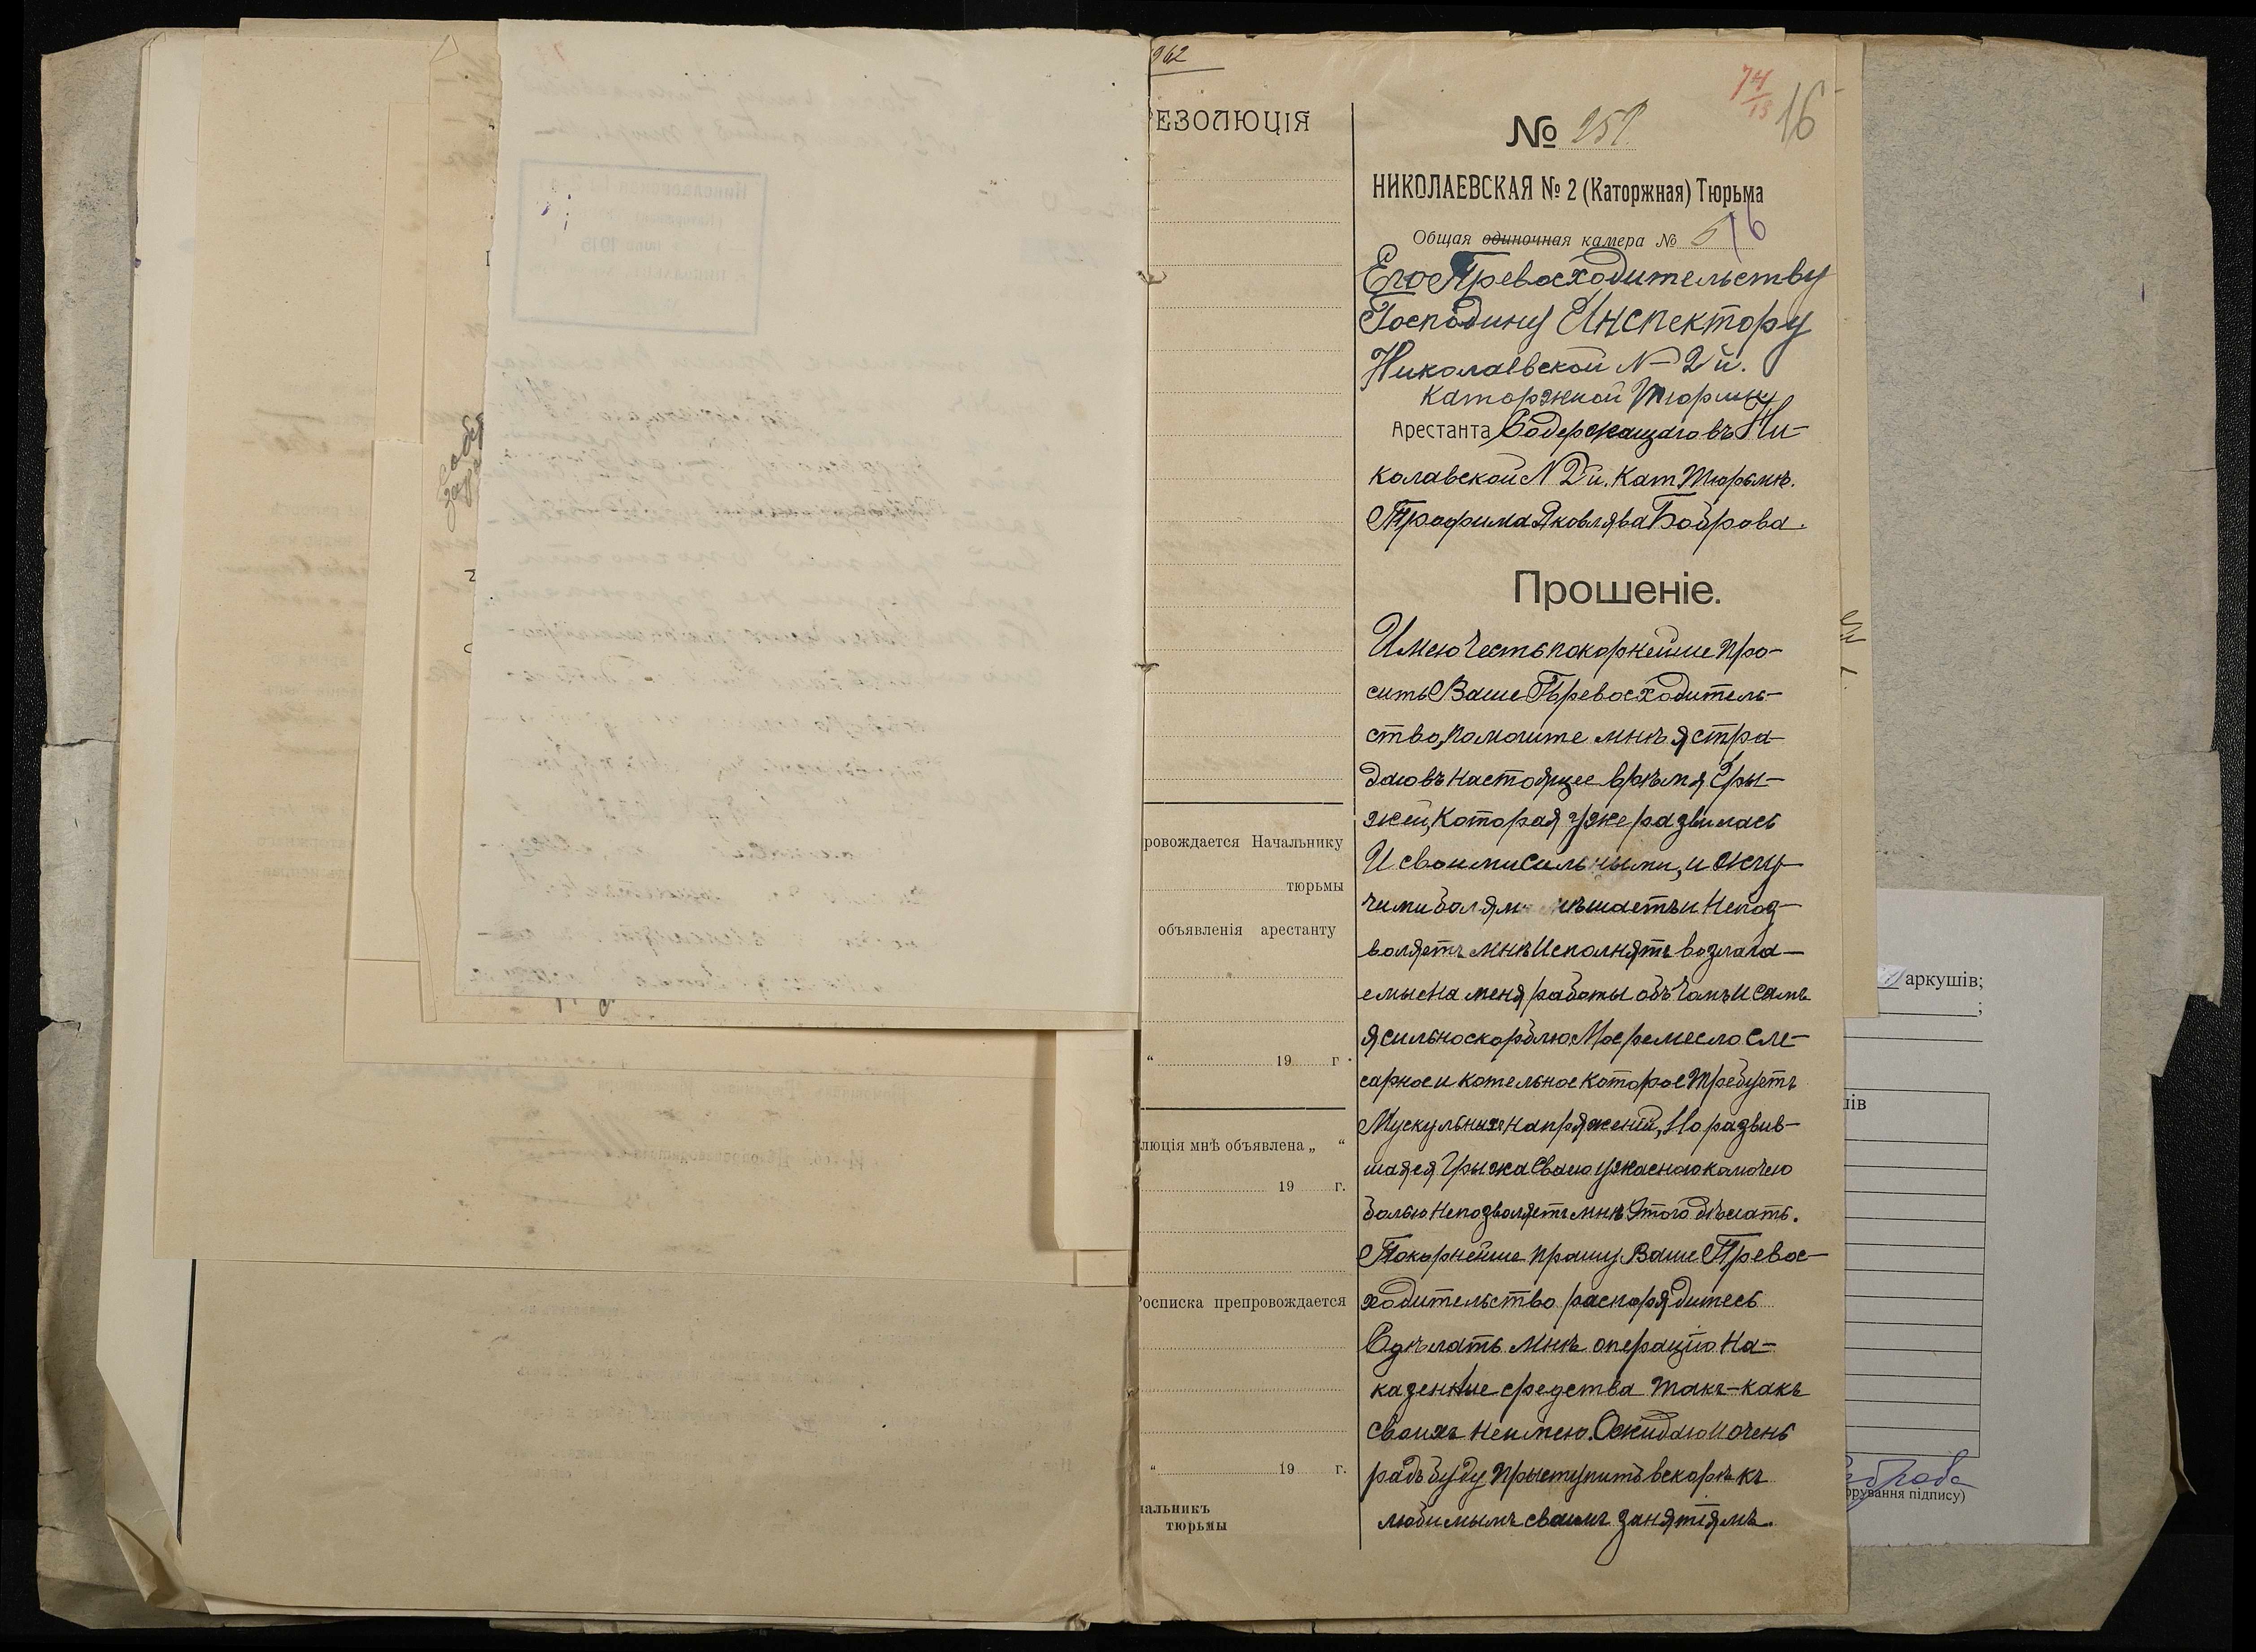 962
ЕЗОЛЮЦІЯ
ровождается Начальнику
тюрьмы
объявленія арестанту
“ 19 г.
люція мнѣ объявлена „ “
19 г.
Росписка препровождается
“ 19 г.
чальникъ
тюрьмы
74
16
№
НИКОЛАЕВСКАЯ № 2 (Каторжная) Тюрьма
Общая одиночная камера №
Его Превосходительству
Господину Инспектору
Николаевской N–2й.
Каторжной Тюрьмы
Арестанта Содержащаговъ Ни-
колавской N 2й. Кат Тюрьмѣ.
Трофима Яковлява Боброва.
Прошеніе.
Имею Честь покорнейше про-
сить Ваше Превосходитель-
ство, помогите мнѣ я стра-
даю въ настоящее врѣмя Гры-
жей, Которая уже развилась
И своими сильными, и жгу-
чими болям мѣшаетъ и Непоз-
воляетъ мнѣ Исполнять возлага-
емые на меня работы объ Чомъ И самъ
я сильно скорблю. Мое ремесло Сле-
сарное и котельное которое Требуетъ
Мускульных напряжений, Но развив-
шаяся Грыжа Своею ужасною колючею
болью Непозволяетъ мнѣ Этого дѣлать.
Покорнейше прошу Ваше Превос-
ходительство распорядитесь
Сдѣлать мнѣ операцію На-
казенные средства такъ-какъ
своихъ Неимею. Ожидаю и очень
радъ буду прыступить вскорѣ къ
любимымъ своимъ занятіямъ.
аркушів;
;
ів
рування підпису)